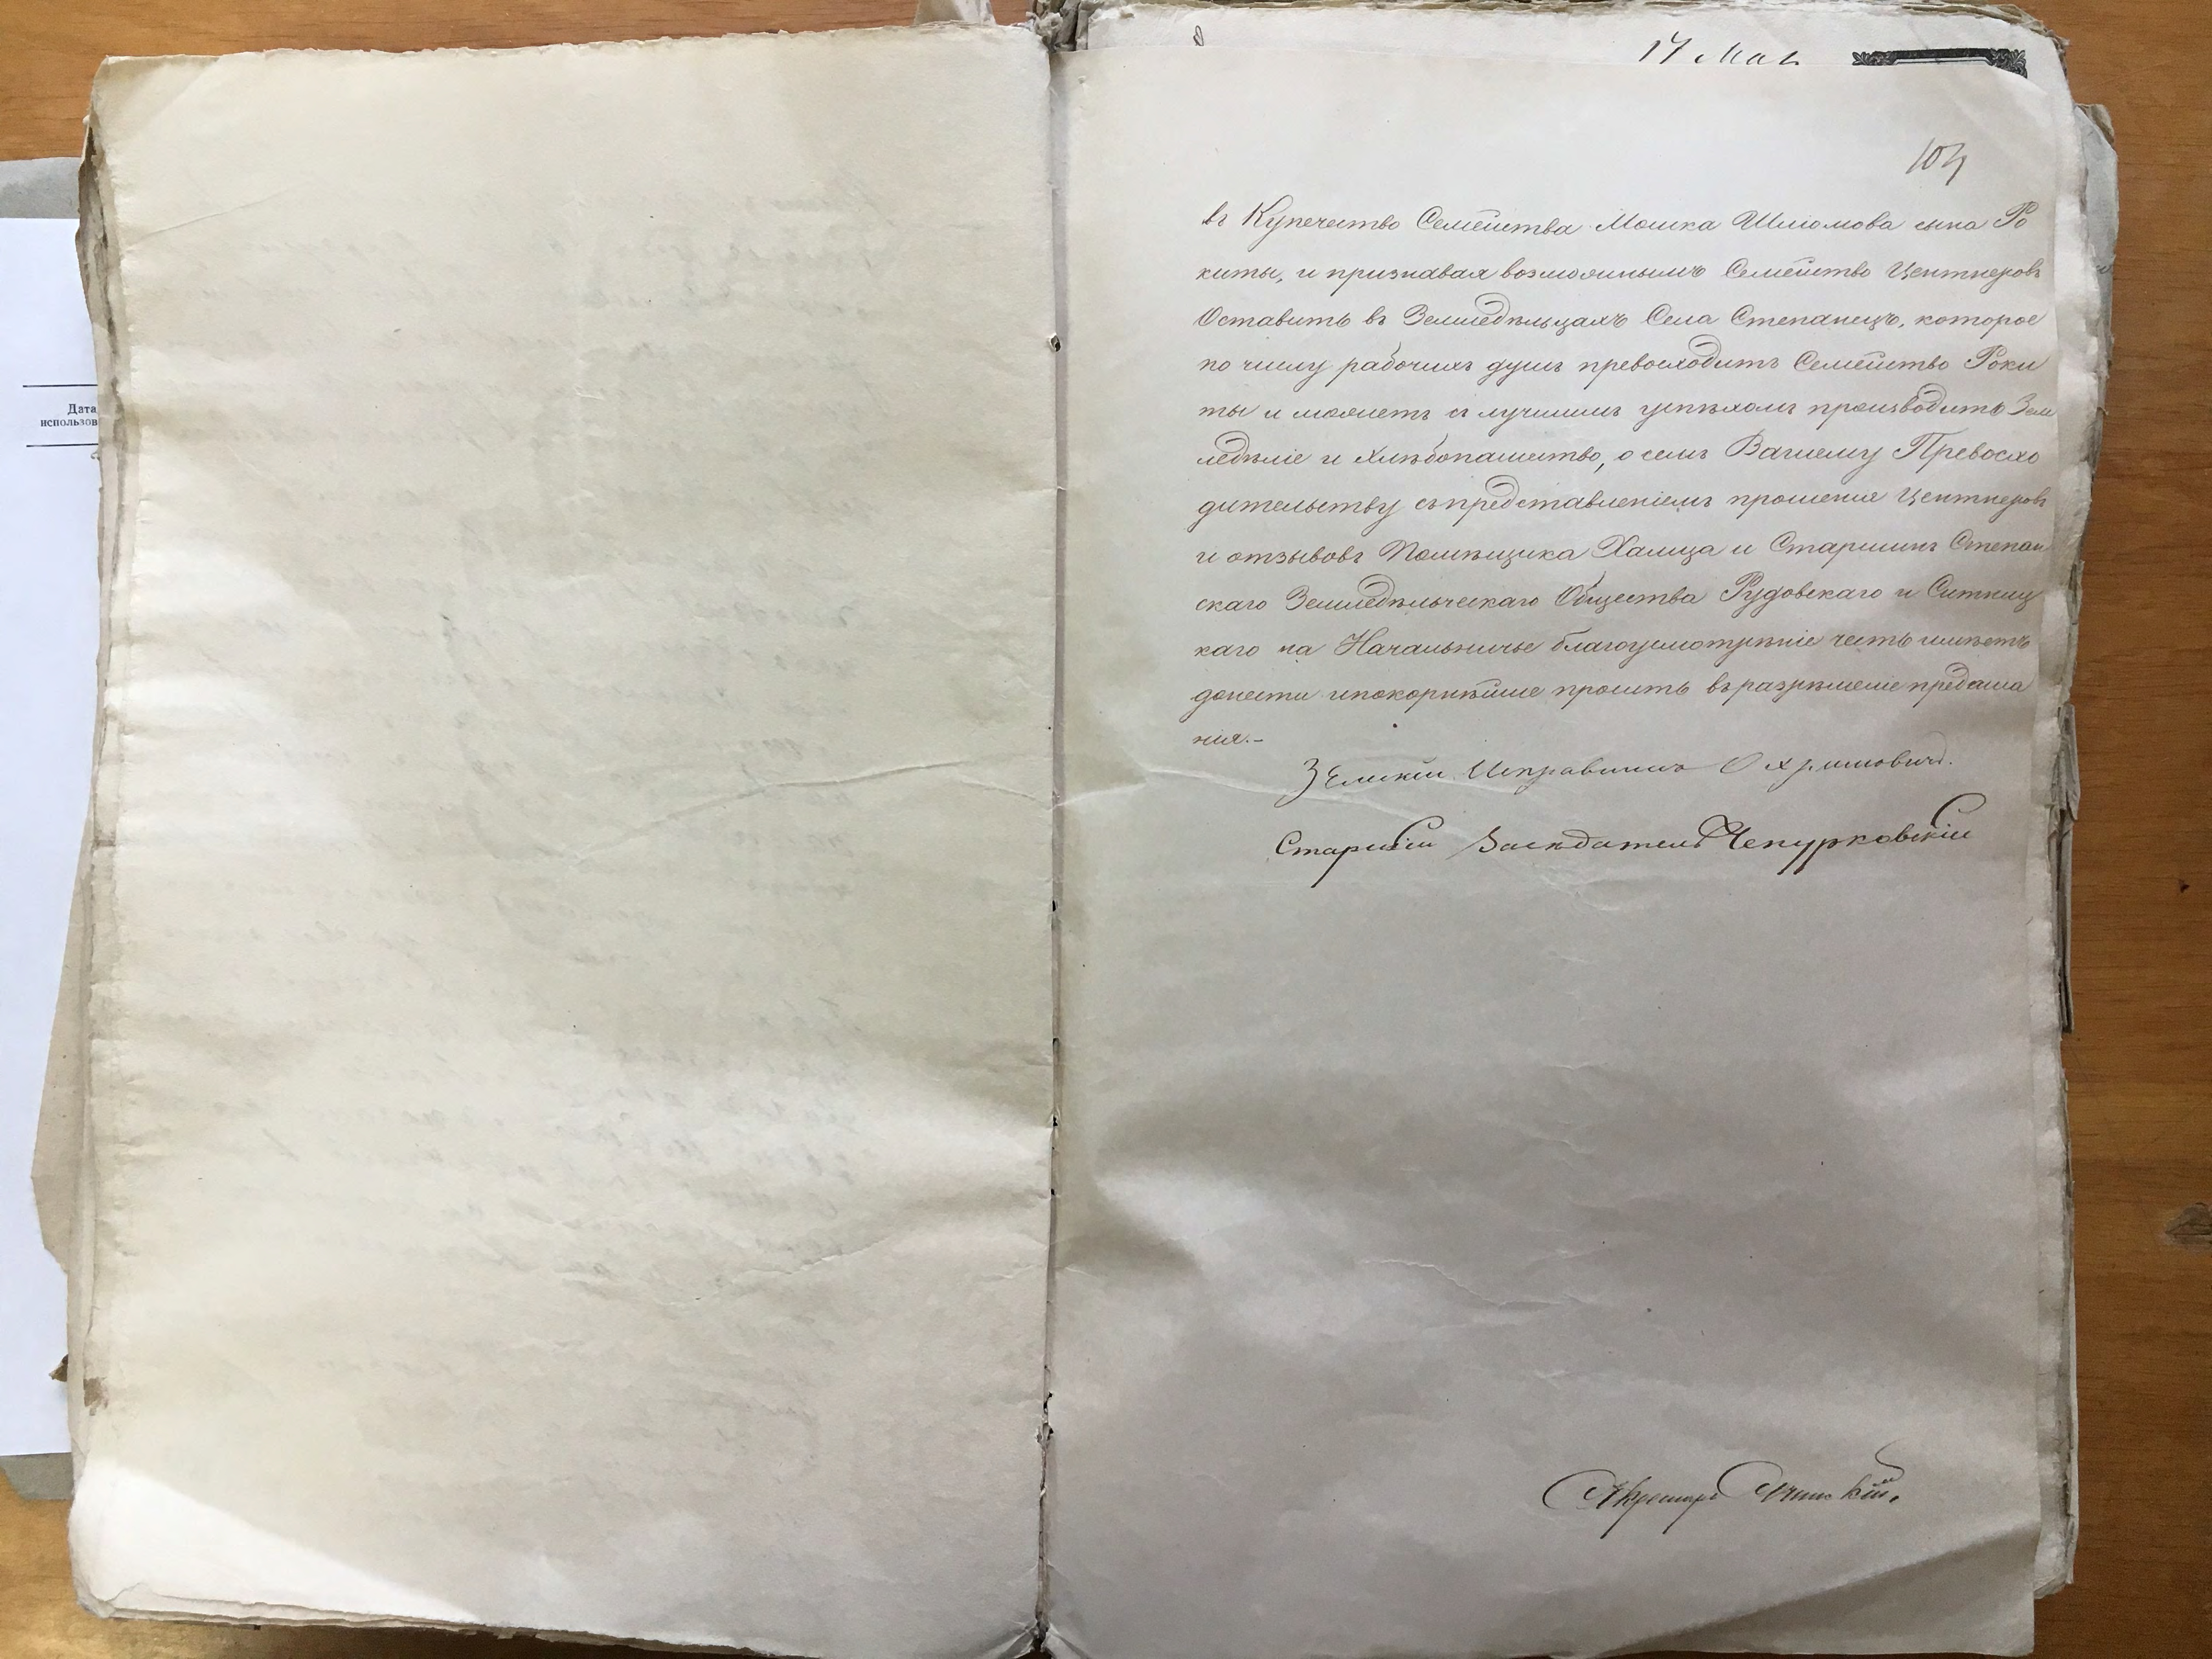 Дата
использов
17 Мая
104
въ Купечество Семейства Мошка Шліомова сына Ро
киты, и признавая возможнымъ Семейство Центнеровъ
Оставить въ Земледѣльцахъ Села Степанецъ, которое
по числу рабочихъ душъ превосходитъ Семейство Роки
ты и можетъ съ лучшимъ успѣхомъ производить Зем
ледѣліе и хлѣбопашество, о семъ Вашему Превосхо
дительству съ представленіемъ прошенія Центнеровъ
и отзывовъ Помѣщика Халица и Старшинъ Степан
скаго Земледѣльческаго Общества Рудовскаго и Ситниц
каго на Начальничье благоусмотрѣніе честь имѣетъ
донести и покорнѣйше просить въ разрѣшеніе предписа
нія.-
Земскій Исправникъ
Старшій Засѣдатель Чепурковскій
Секретарь